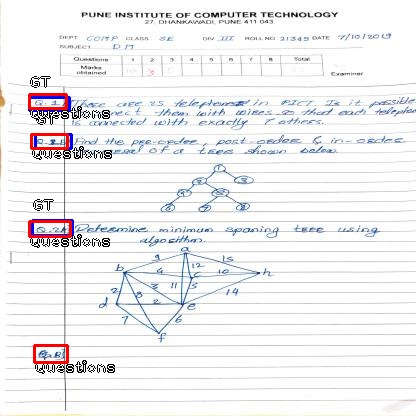 PUNE INSTITUTE OF COMPUTER TECHNOLOGY
27, DHANKAWADI, PUNE 411 043.
DEPT COMP CLASS SE DIV III ROLL NO. 21345 DATE 7/10/2019
SUBJECT D M
Questions 1 2 3 4 5 6 7 8 Total
Marks obtained
Examiner
GT
Q.1 There are 25 telephones in PICT. Is it possible
connect them with wires so that each telephone
is connected with exactly 7 others.
Questions
GT
Find the pre-order, post-order & in-order
of a tree shown below.
Questions
1
GT
Q.2A Determine minimum spaning tree using
algorithm.
Questions
a
9 12 15
b 4 c 10 h
2 8 3 11 5 14
d 2 e
7 6
f
Questions